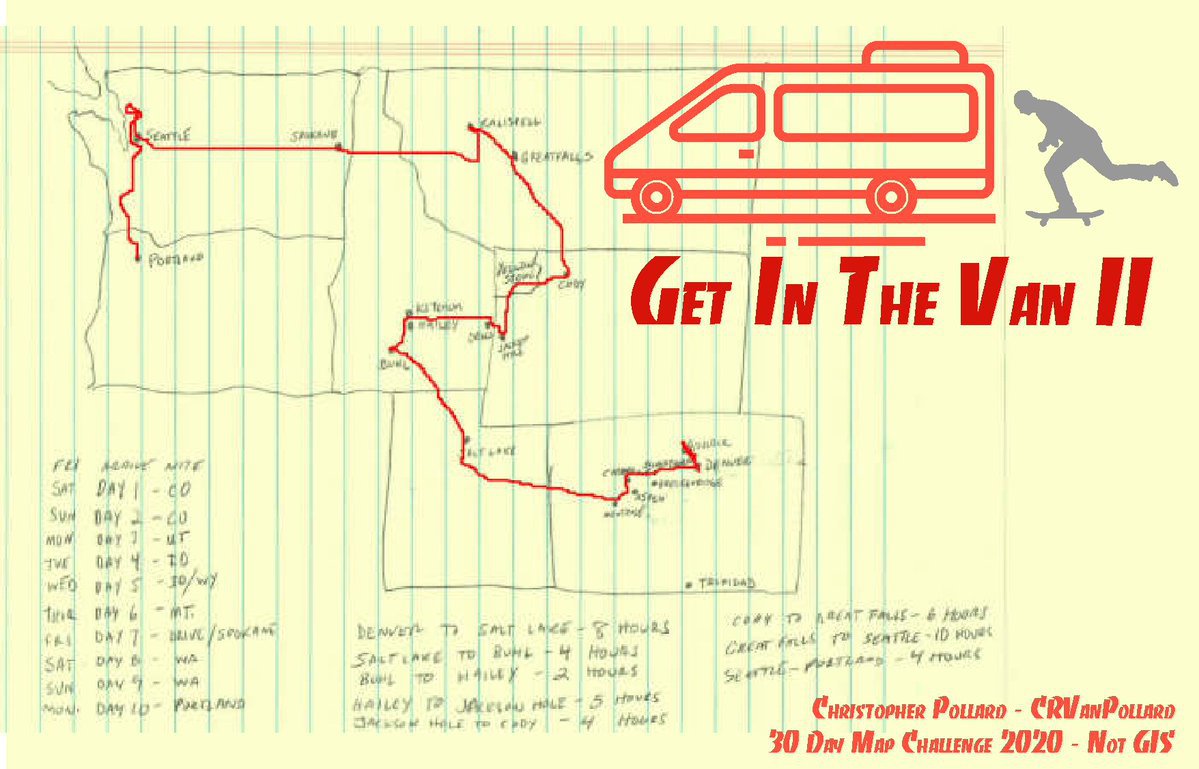 SEATTLE
SPOKANE
KALISPELL
GREAT FALLS
PORTLAND
CODY
KETCHUM
HAILEY
JACKSON HOLE
BUHL
SALT LAKE
BOULDER
DENVER
BRECKENRIDGE
ASPEN
TRINIDAD
GET IN THE VAN II
FRI ARRIVE NITE
SAT DAY 1 - CO
SUN DAY 2 - CO
MON DAY 3 - UT
TUE DAY 4 - ID
WED DAY 5 - ID/WY
THUR DAY 6 - MT.
FRI DAY 7 - DRIVE/SPOKANE
SAT DAY 8 - WA
SUN DAY 9 - WA
MON DAY 10 - PORTLAND
DENVER TO SALT LAKE - 8 HOURS
SALT LAKE TO BUHL - 4 HOURS
BUHL TO HAILEY - 2 HOURS
HAILEY TO JACKSON HOLE - 5 HOURS
JACKSON HOLE TO CODY - 4 HOURS
CODY TO GREAT FALLS - 6 HOURS
GREAT FALLS TO SEATTLE - 10 HOURS
SEATTLE - PORTLAND - 4 HOURS
CHRISTOPHER POLLARD - CRVANPOLLARD
30 DAY MAP CHALLENGE 2020 - NOT GIS